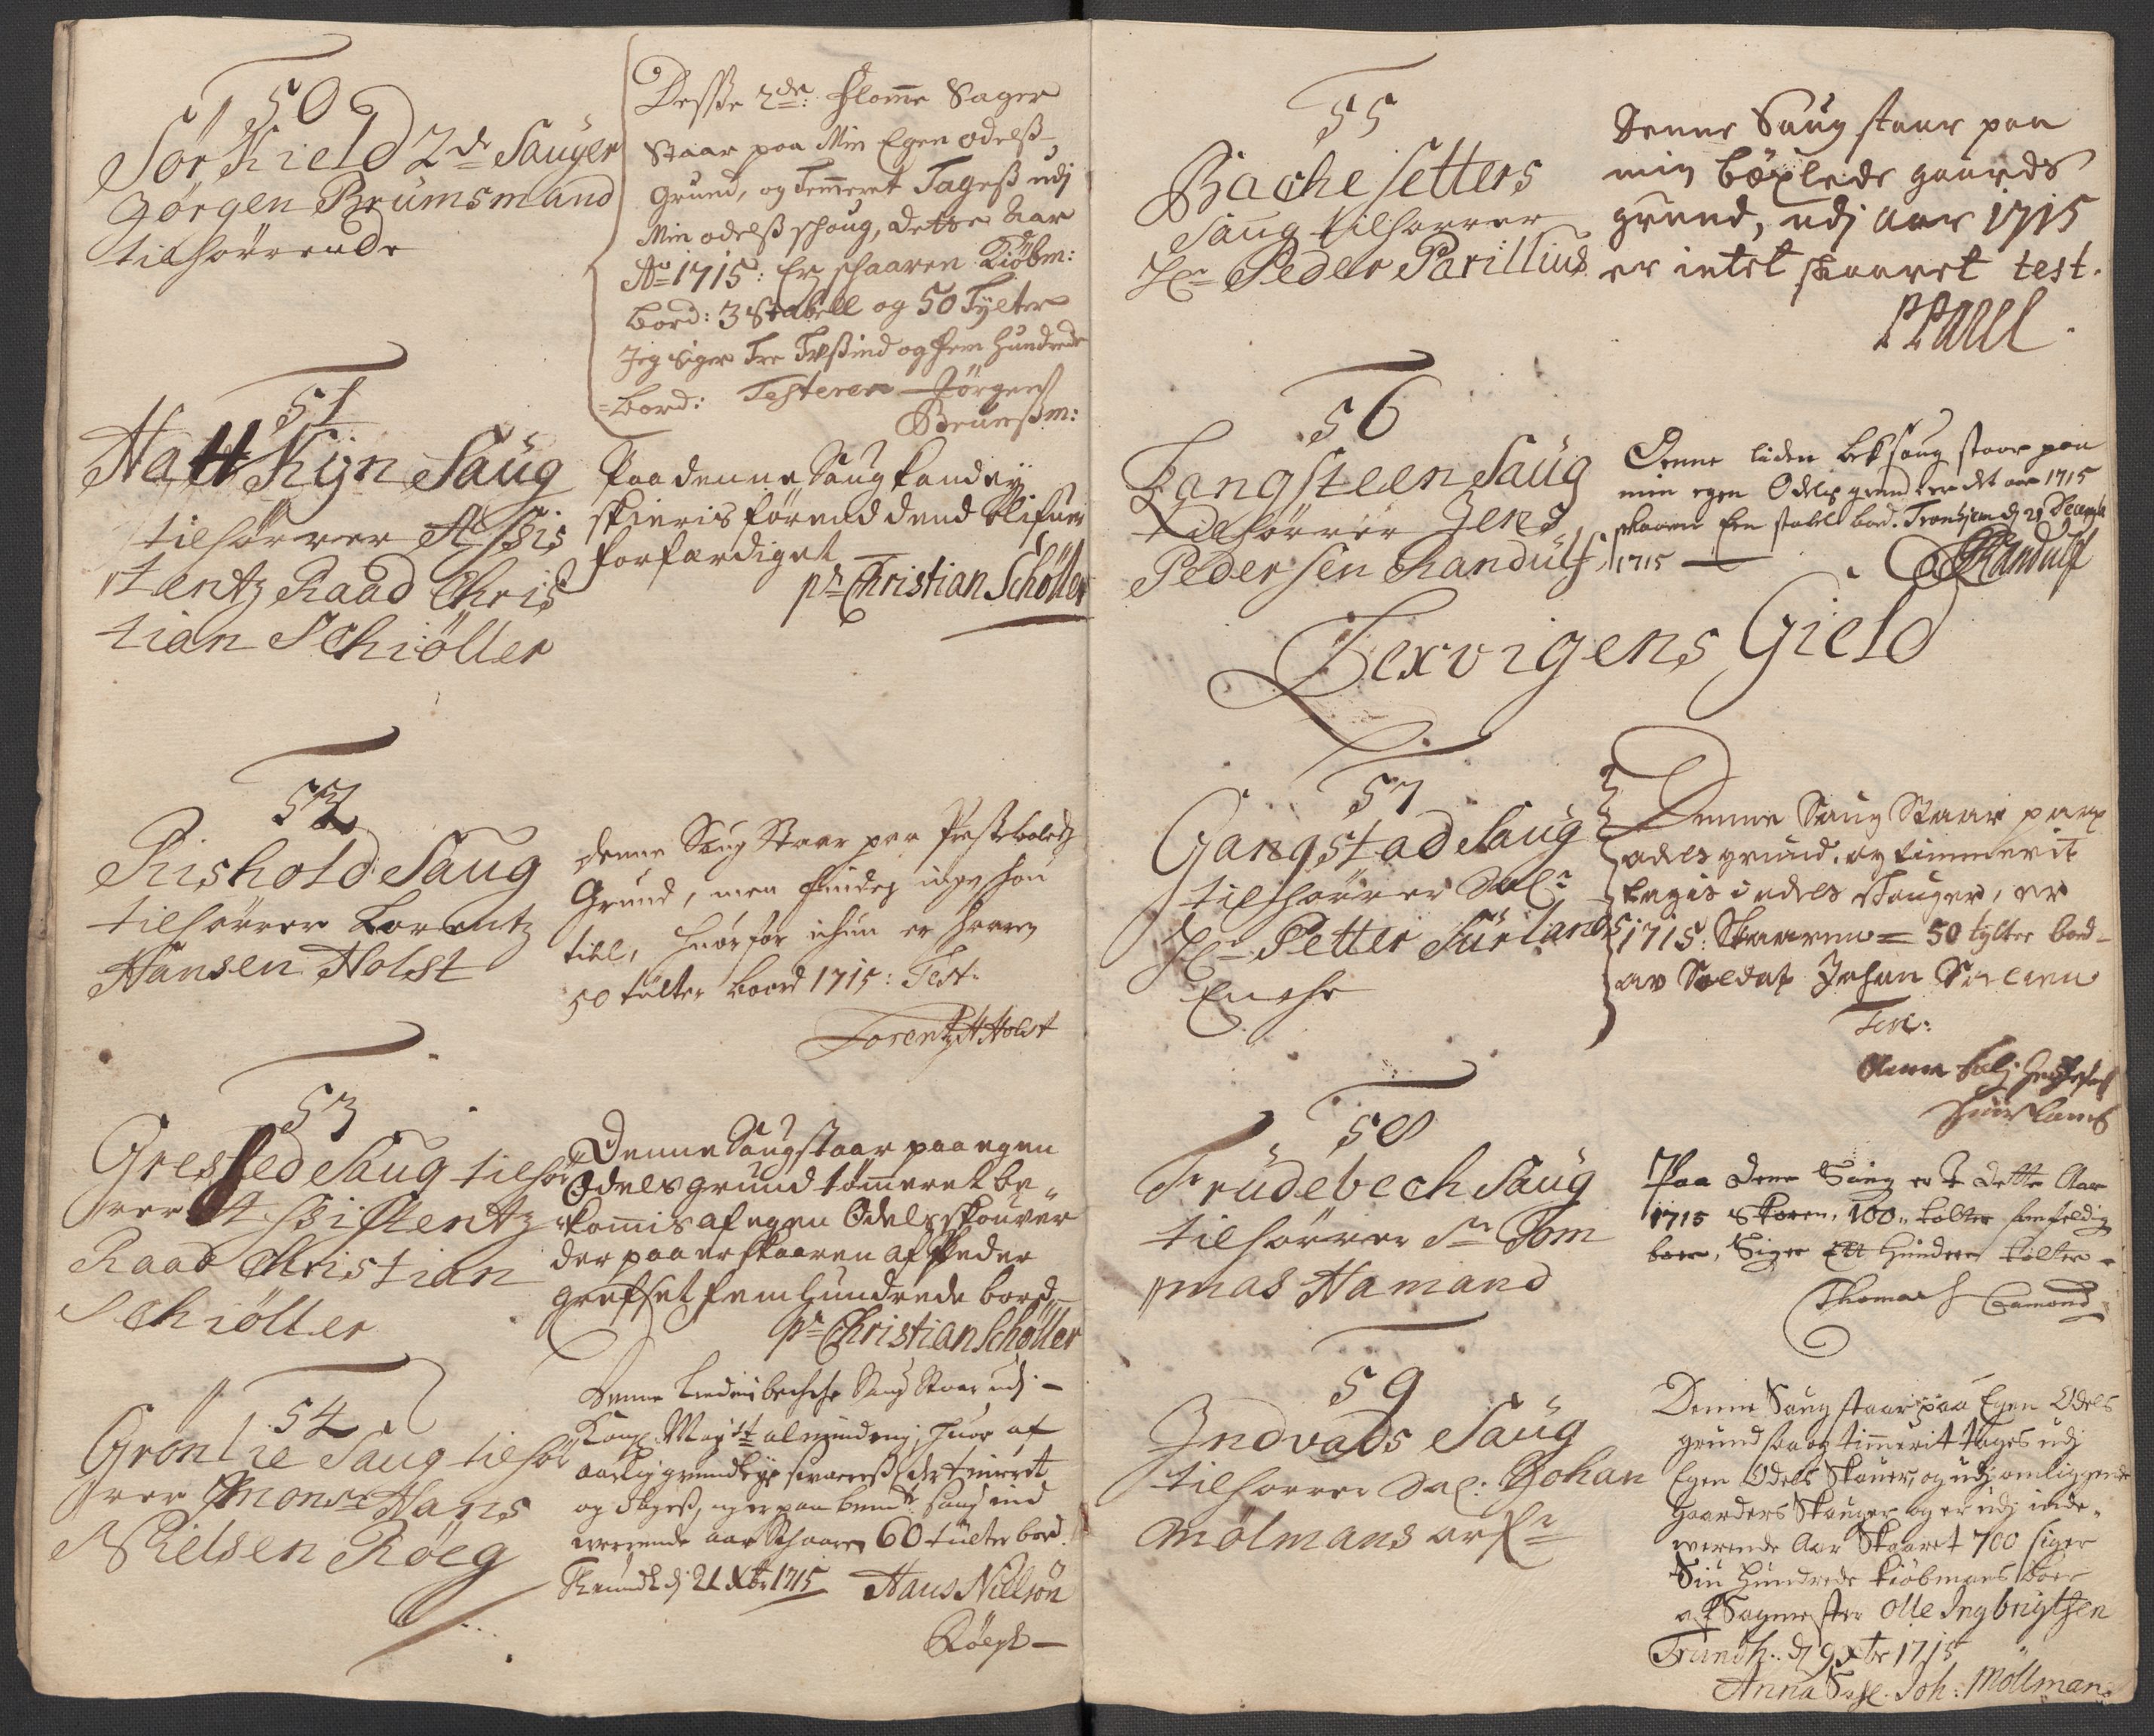 50
Sørkield 2de Sauger
Jørgen Brumsmand
tilhørrende
Desse 2de: Flomme Sager
Staar paa Min Egen odelß
grund, og Temmeret Tageß udj
Min odelß schoug, dette Aar
Ao 1715: Er schaaren Kiøbm:
bord: 3 Stabell og 50 Tylter
Jeg siger Tre Tußind og fem Hundrede
bord: Testerer Jørgen
Brumßm:
51
Hattkijn Saug
tilhørrer Assis
tentz Raad Chris
tian Schiøller
Paa denne Saug kand ey
skieris førend dend blifuer
forfærdiget
pr Christian Schøller
52
Rishold Saug
tilhørrer Lorentz
Hansen Holst
denne Saug Staar paa Prestebolets
Grund, men findes ingen
till, huorfor ichun er
50 tülter boord 1715: Test.
Lorentz H Holst
53
Gresfed Saug tilhør
rer Assistentz
Raad Christian
Schiøller
Denne Saug staar paa egen
Odels grund tømmeret be
kommis af egen Odels skouver
der paa er skaaren af Peder
Grefset fem hundrede bord
pr Christian Schøller
54
Grønlie Saug tilhør
rer Monsr Hans
Nielsen Røeg
Denne Saug Staar udj
Kongl Maytt alminding, huor af
aarlig grundleye svareß
og Tageß, og er paa bemte Saug ind
werende aar Schaaren 60 tülter bord.
Trundh dj 21 Xbr 1715 Hans Nielsøn
Røegh
55
Bachesetters
Saug tilhørrer
Hr Peder Parillius
Denne Saug staar paa
min böxlede gaards
grund, udj aar 1715
er intet skaaret test.
PParel.
56
Langsteen Saug
tilhørrer Jens
Pedersen Randulf
Denne liden bek saug staar paa
min egen Odels grund er det aar 1715
skaaren Een stabel bord. Trondhiem dj 21 Decemb
1715
Randulf
Lexvigens Gield
57
Gangstad Saug
tilhørrer Sal:
Hr Petter Sürlands
Enche
Denne Saug Staar paa
odels grund, og timmerit
tagis i odels skouger, er
1715: Skaaren = 50 tylter bord
av Soldat Johan
Test:
Anna Sal:
Suurlands
58
Trüdebech Saug
tilhørrer Sr Tom
mas Hamand
Paa denne Saug er I dette Aar
1715 Skoren, 100 tolter
boer, Siger Ett Hundrer tolter
Thomas Hamond
59
Indvads Saug
tilhørrer Sal: Johan
Mølmans arfr
Denne Saug staar paa Egen Odels
grund saa og timmerit tages udj
Egen Odels Skouer, og udj omliggende
Gaarders Skouger og er udj inde
werende Aar Skaaret 700 siger
Siu Hundrede kiøbmans boer
af Sagmester Olle Ingbrigtsen
Trundh: dj 9 Xbr 1715
Anna Sal. Joh: Möllmans